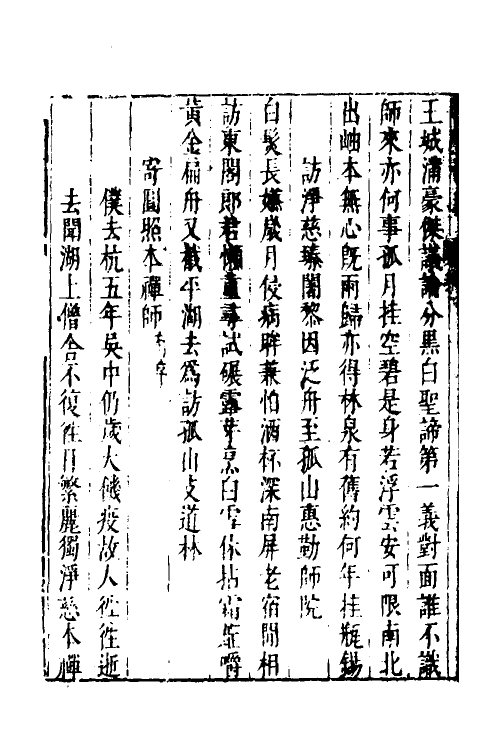 王城滿豪傑議論分黑白聖諦第一義對面誰不識
師來亦何事孤月挂空碧是身若浮雲安可限南北
出岫本無心既雨歸亦得林泉有舊約何年挂瓶錫
訪淨慈臻闍黎因泛舟至孤山惠勤師院
白髮長嫌歲月侵病眸兼怕酒杯深南屏老宿閒相
訪東閣郎君懶重尋試碾露芽烹白雪休拈霜蕊嚼
黃金扁舟又截平湖去爲訪孤山支道林
寄圓照本禪師
僕去杭五年吳中仍歲大饑疫故人往往逝
去聞湖上僧舍不復往日繁麗獨淨慈本禪